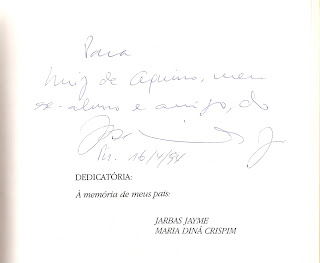 Para
Luiz de Aquino, meu
ex-aluno e amigo, do
Pir. 16/4/94
DEDICATÓRIA:
À memória de meus pais:
JARBAS JAYME
MARIA DINÁ CRISPIM